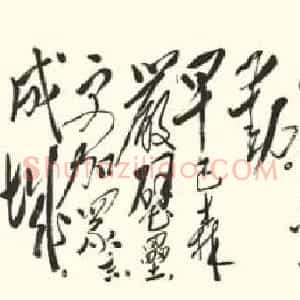 动。
早已森
严壁垒，
更加众志
成城。
Shufaziliao.COM